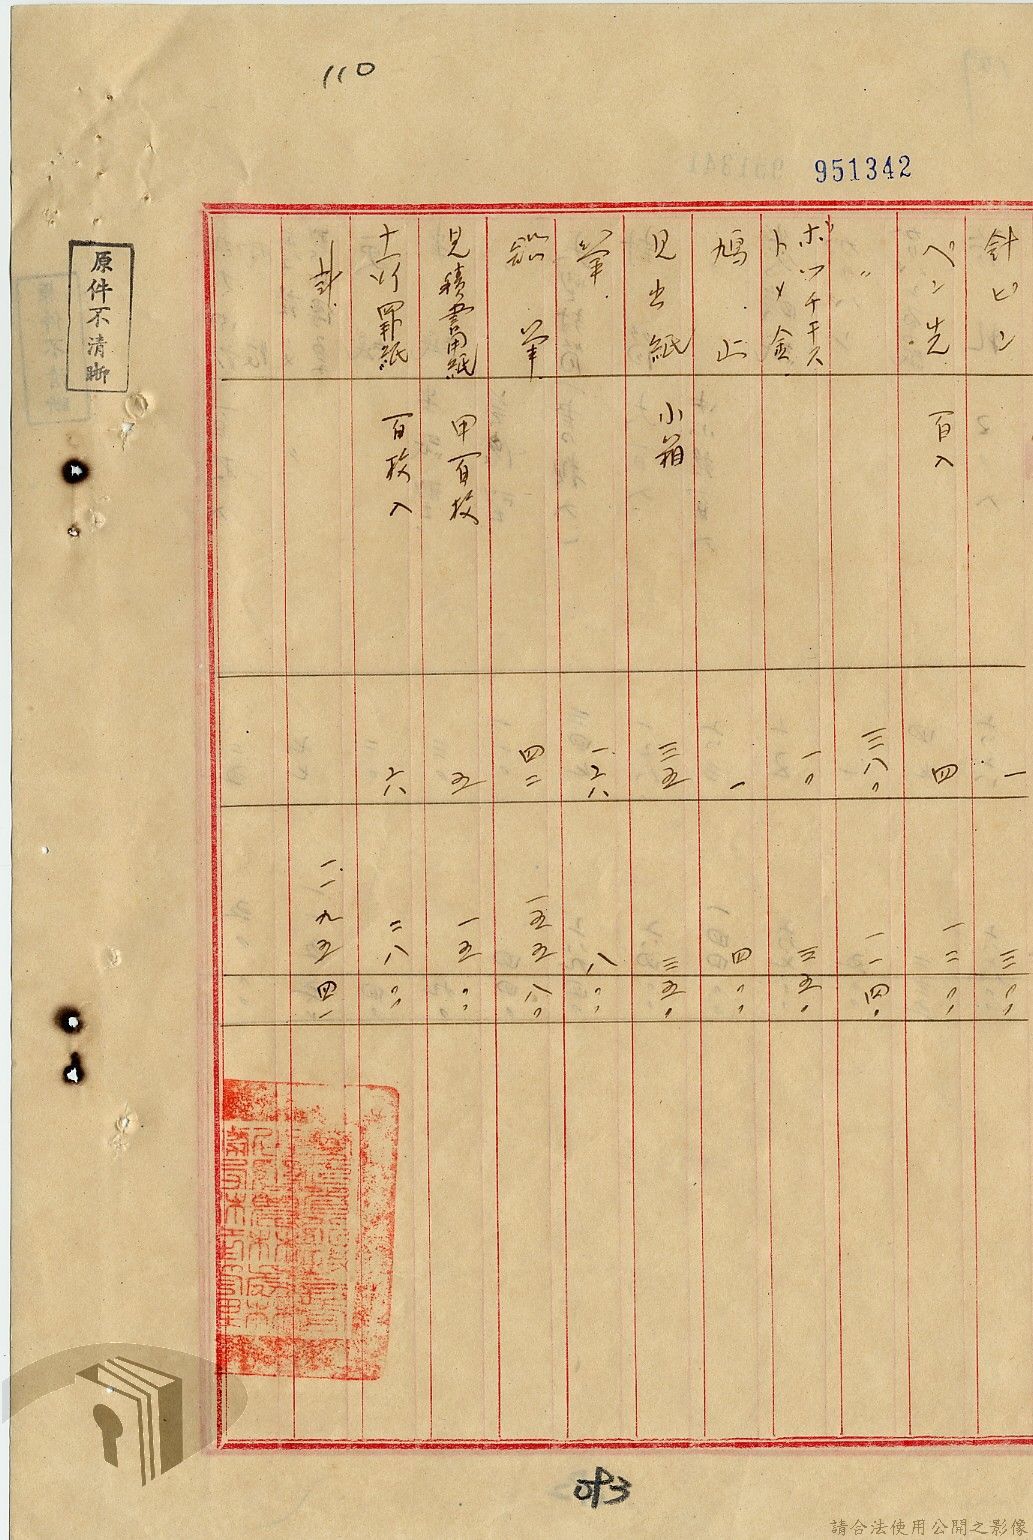 110
951342
原件不清晰
針ピン 一 三〃〃
ペン先 百入 四 一二〃〃
〃 三八〃 一一四〃
ホツチキス
トメ金 一〃 三五〃
鳩止 一 四〃〃
見出紙 小箱 三五 三五〃
筆 一二八 八〃〃
鉛筆 四二 一五五八〃
見積書用紙 甲百枚 五 一五〃〃
十一行罫紙 百枚入 二八〃〃
計 一一九五四一
093
請合法使用公開之影像